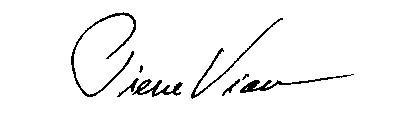 Pierre Viau